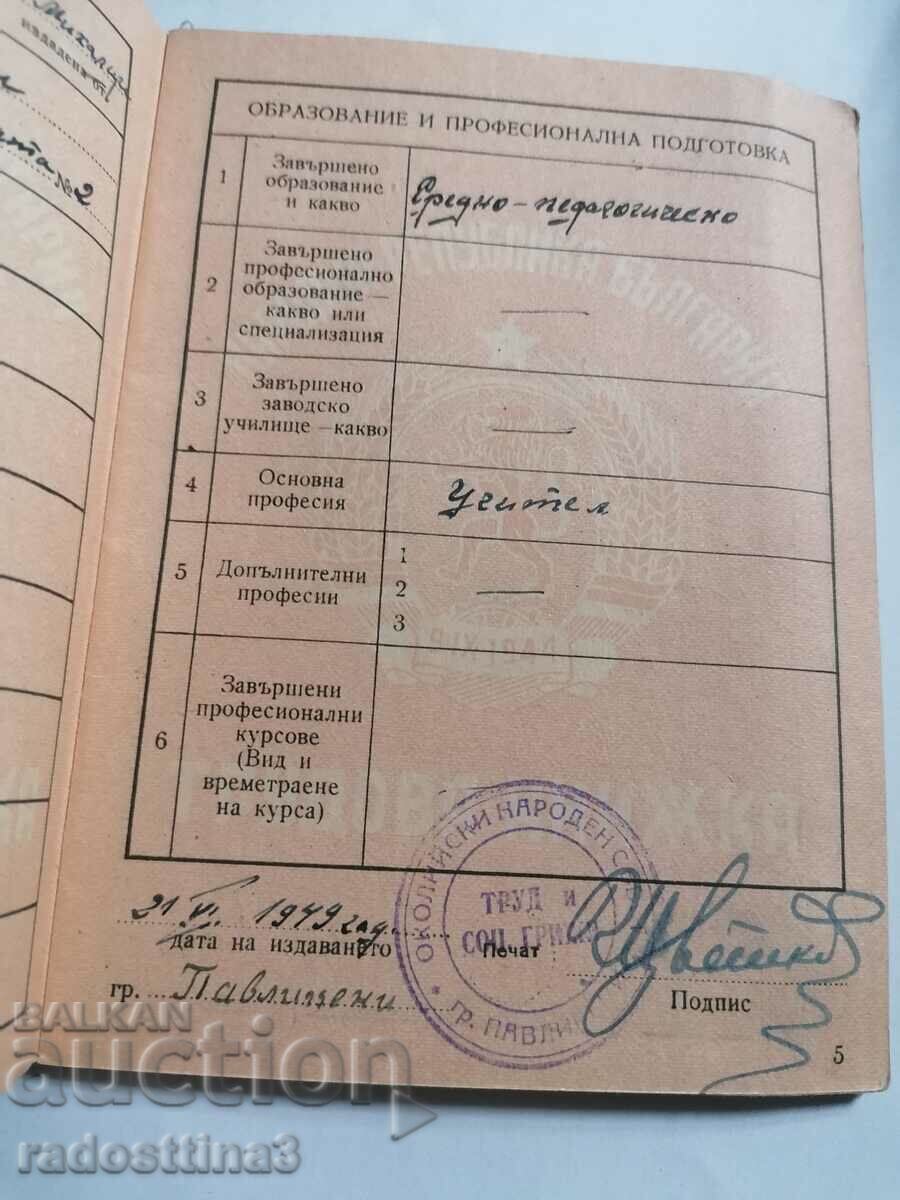 Михалци
издадена от
№ 2
ОБРАЗОВАНИЕ И ПРОФЕСИОНАЛНА ПОДГОТОВКА
1
Завършено
образование
и какво
Средно-педагогическо
2
Завършено
професионално
образование —
какво или
специализация
—
3
Завършено
заводско
училище —какво
—
4
Основна
професия
Учител
5
Допълнителни
професии
1
2 —
3
6
Завършени
професионални
курсове
(Вид и
времетраене
на курса)
ОКОЛИЙСКИ НАРОДЕН С
ТРУД и
СОЦ. ГРИЖИ
ГР. ПАВЛИ
21 VI 1949 год.
дата на издаването
Печат
гр. Павликени
Подпис
5
BALKAN
auction
radosttina3